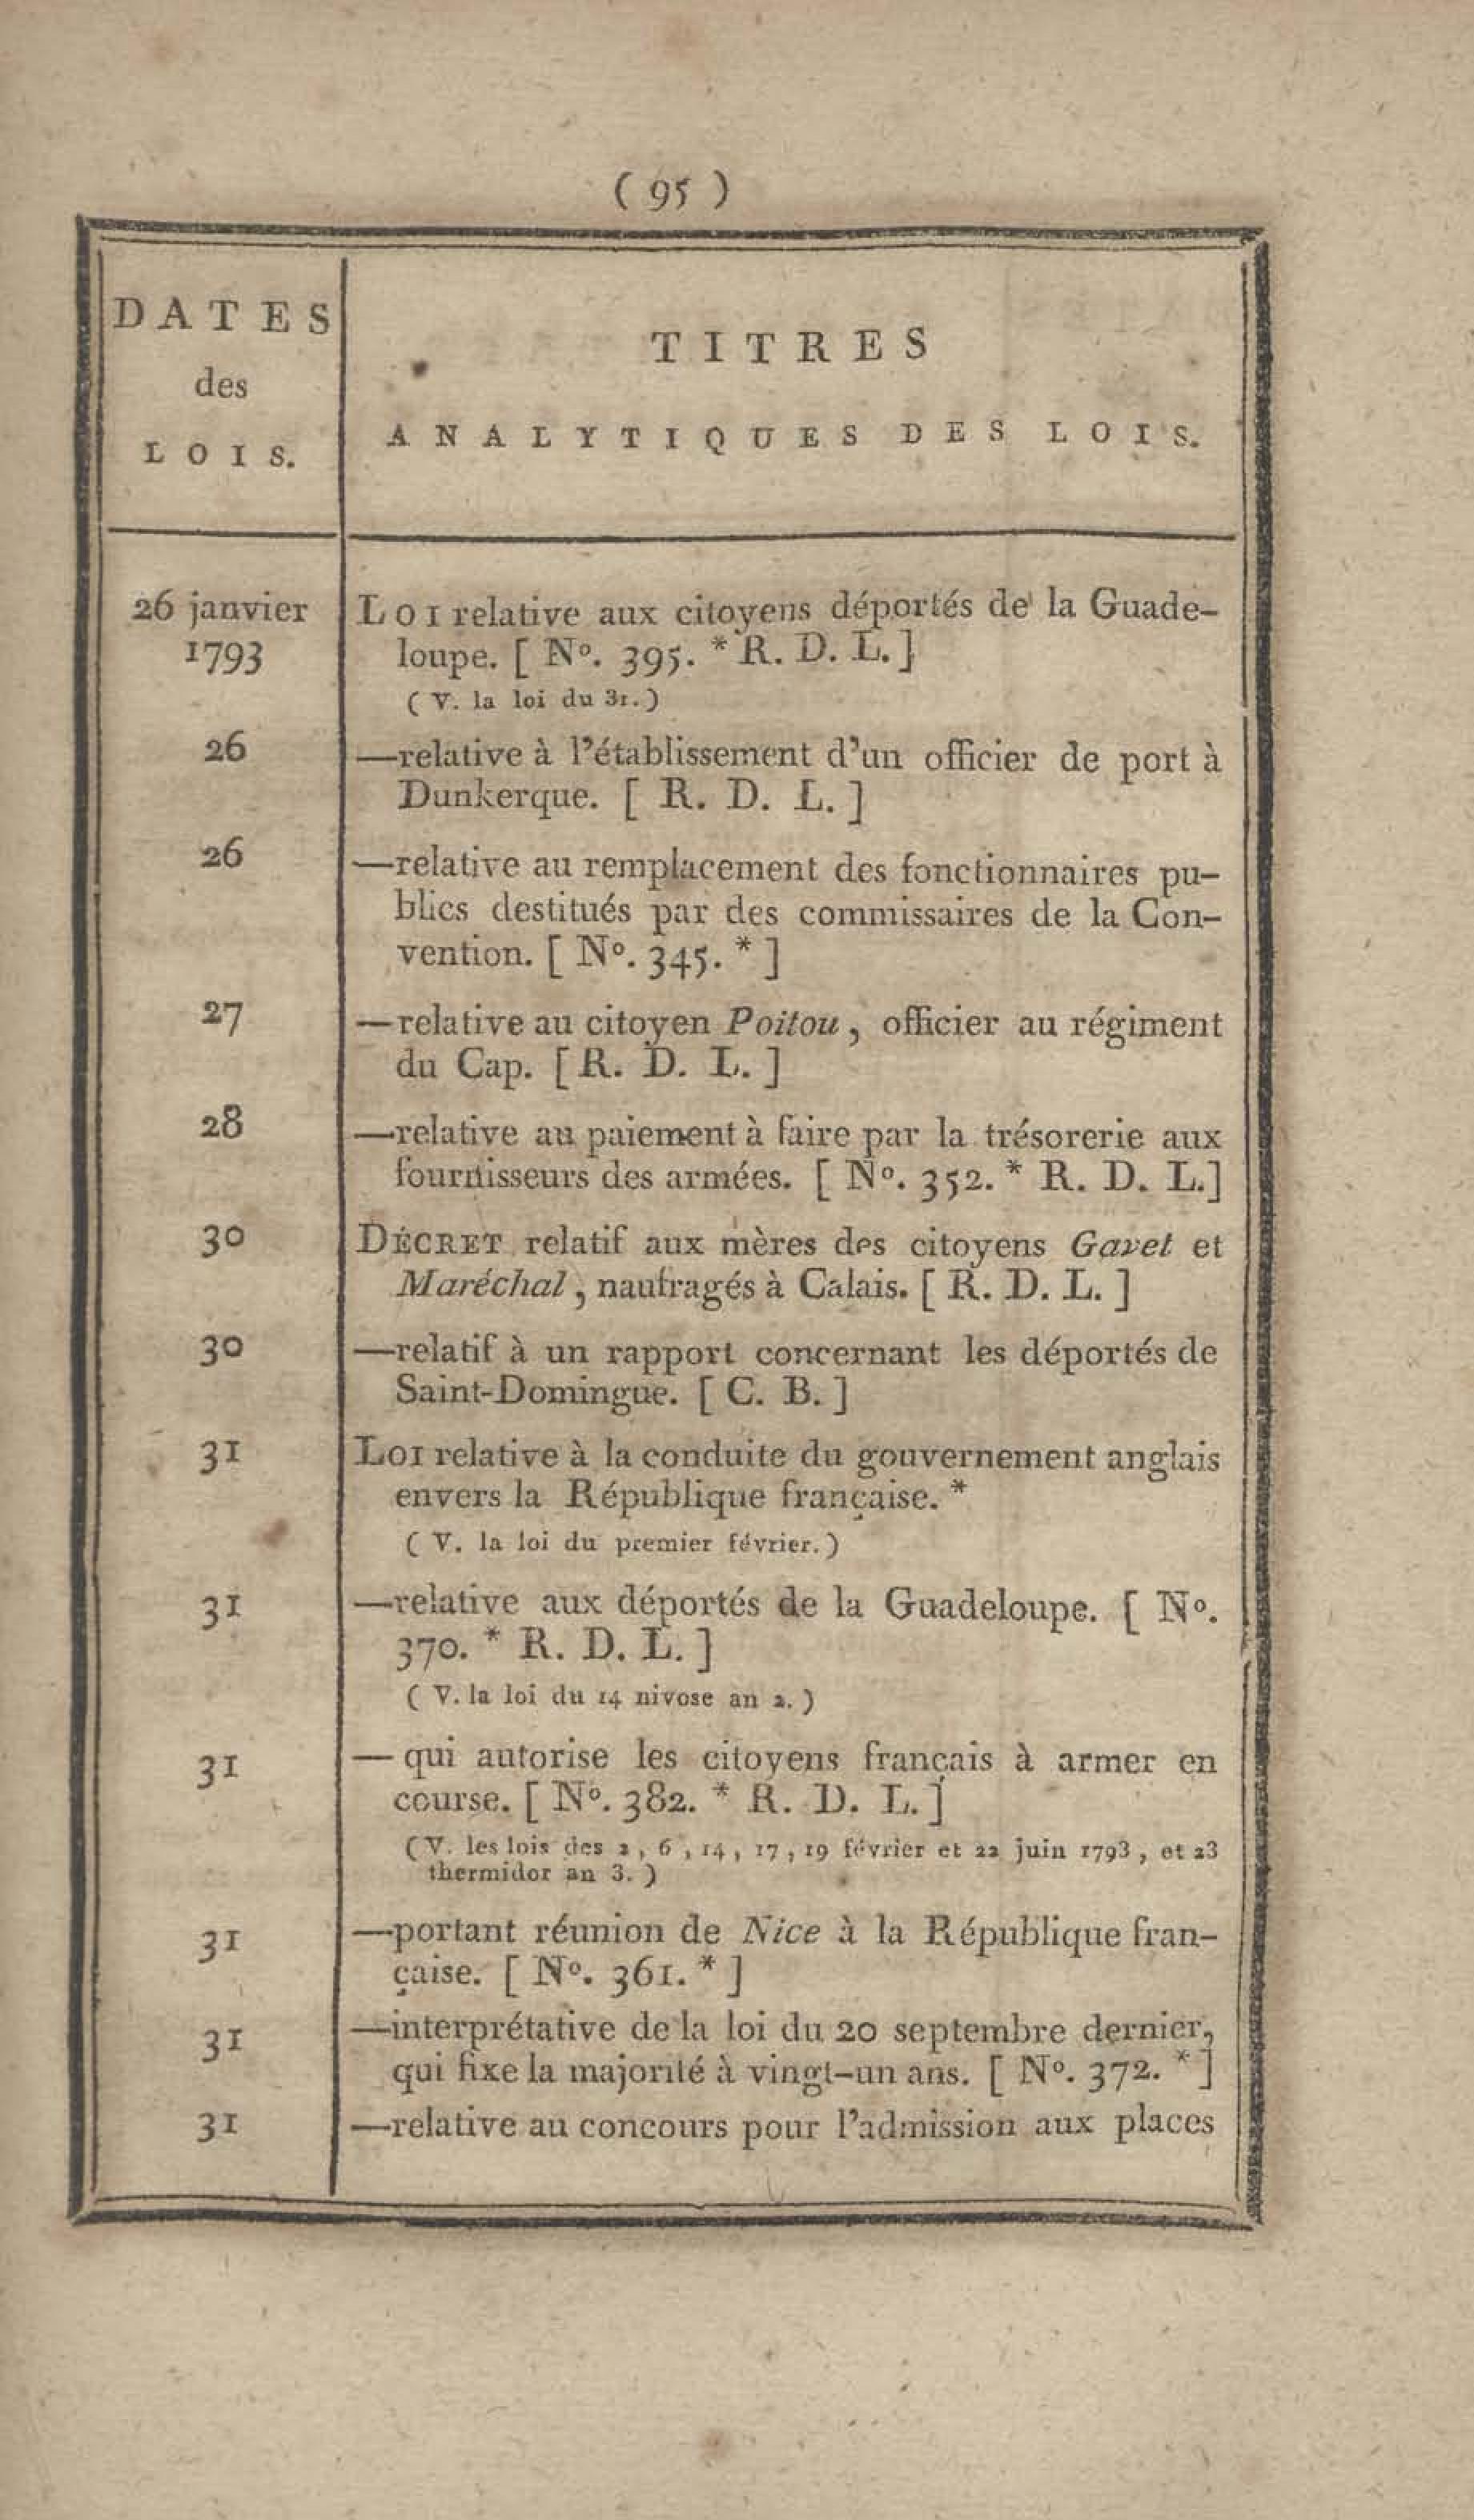 ( 95 )
DATES
des
LOIS.
TITRES
ANALYTIQUES DES LOIS.
26 janvier
1793
LOI relative aux citoyens déportés de la Guade-
loupe. [ Nº. 395. * R. D. L. ]
( V. la loi du 31. )
26
—relative à l'établissement d'un officier de port à
Dunkerque. [ R. D. L. ]
26
—relative au remplacement des fonctionnaires pu-
blics destitués par des commissaires de la Con-
vention. [ Nº. 345. * ]
27
—relative au citoyen Poitou, officier au régiment
du Cap. [ R. D. L. ]
28
—relative au paiement à faire par la trésorerie aux
fournisseurs des armées. [ Nº. 352. * R. D. L.]
30
DÉCRET relatif aux mères des citoyens Gavet et
Maréchal, naufragés à Calais. [ R. D. L. ]
30
—relatif à un rapport concernant les déportés de
Saint-Domingue. [ C. B. ]
31
LOI relative à la conduite du gouvernement anglais
envers la République française. *
( V. la loi du premier février. )
31
—relative aux déportés de la Guadeloupe. [ Nº.
370. * R. D. L. ]
( V. la loi du 14 nivose an 2. )
31
— qui autorise les citoyens français à armer en
course. [ Nº. 382. * R. D. L. ]
( V. les lois des 2, 6, 14, 17, 19 février et 22 juin 1793, et 23
thermidor an 3. )
31
—portant réunion de Nice à la République fran-
çaise. [ Nº. 361. * ]
31
—interprétative de la loi du 20 septembre dernier,
qui fixe la majorité à vingt-un ans. [ Nº. 372. * ]
31
—relative au concours pour l'admission aux places